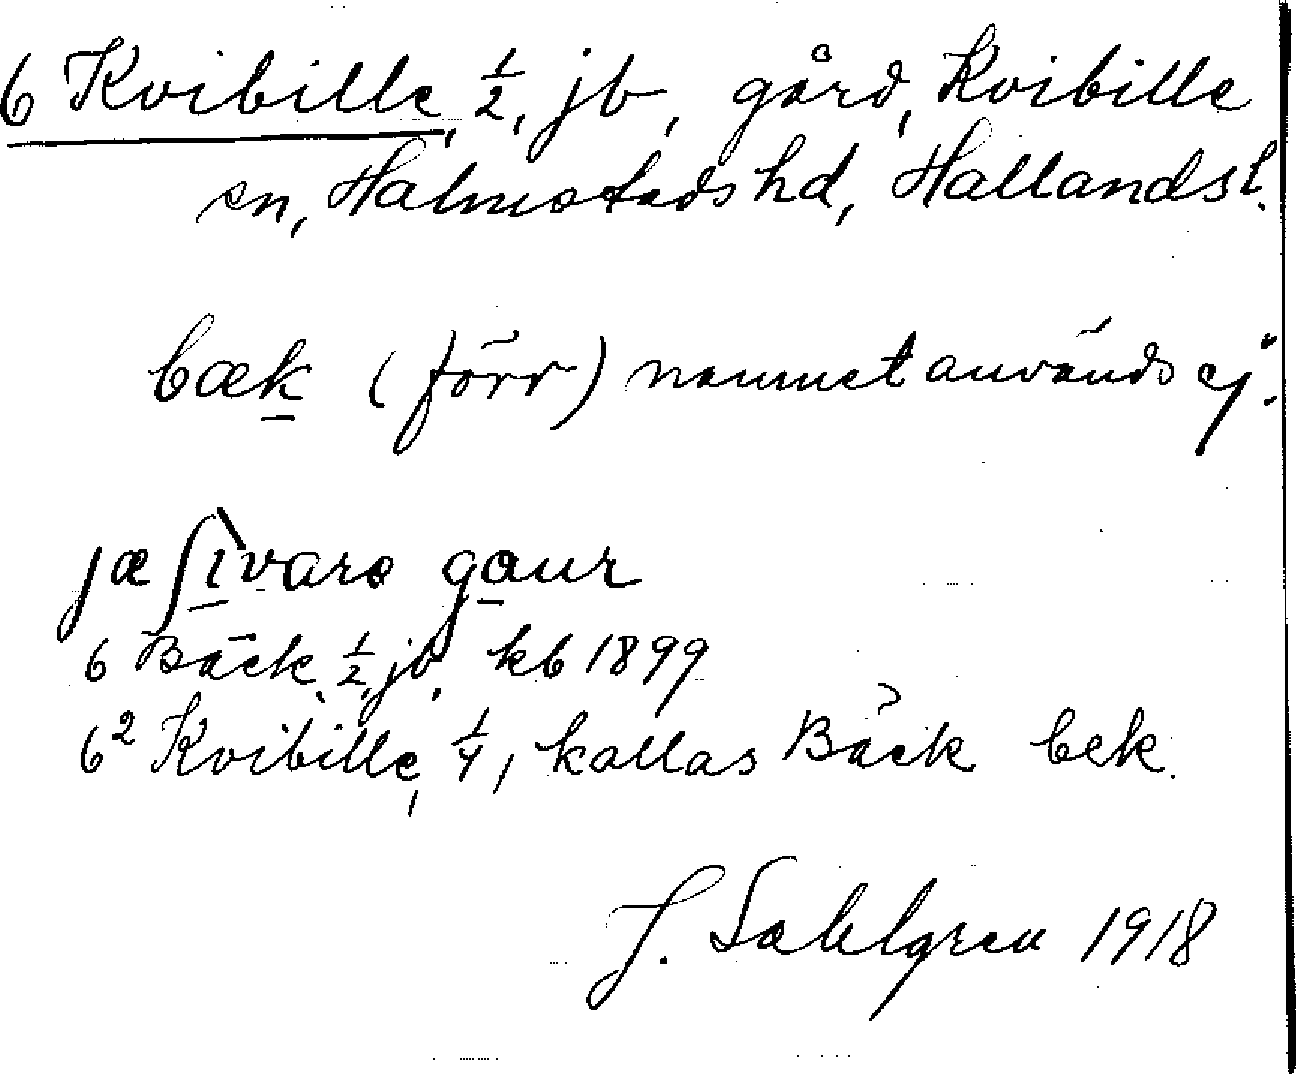 6 Kvibille, ½, jb, gård, Kvibille
sn, Halmstads hd, Hallands l.
bæk (förr) namnet används ej.
gaur
6 Bäck, ½, jb, kb 1899
6² Kvibille, ¼, kallas Bäck bek.
J. Sahlgren 1918